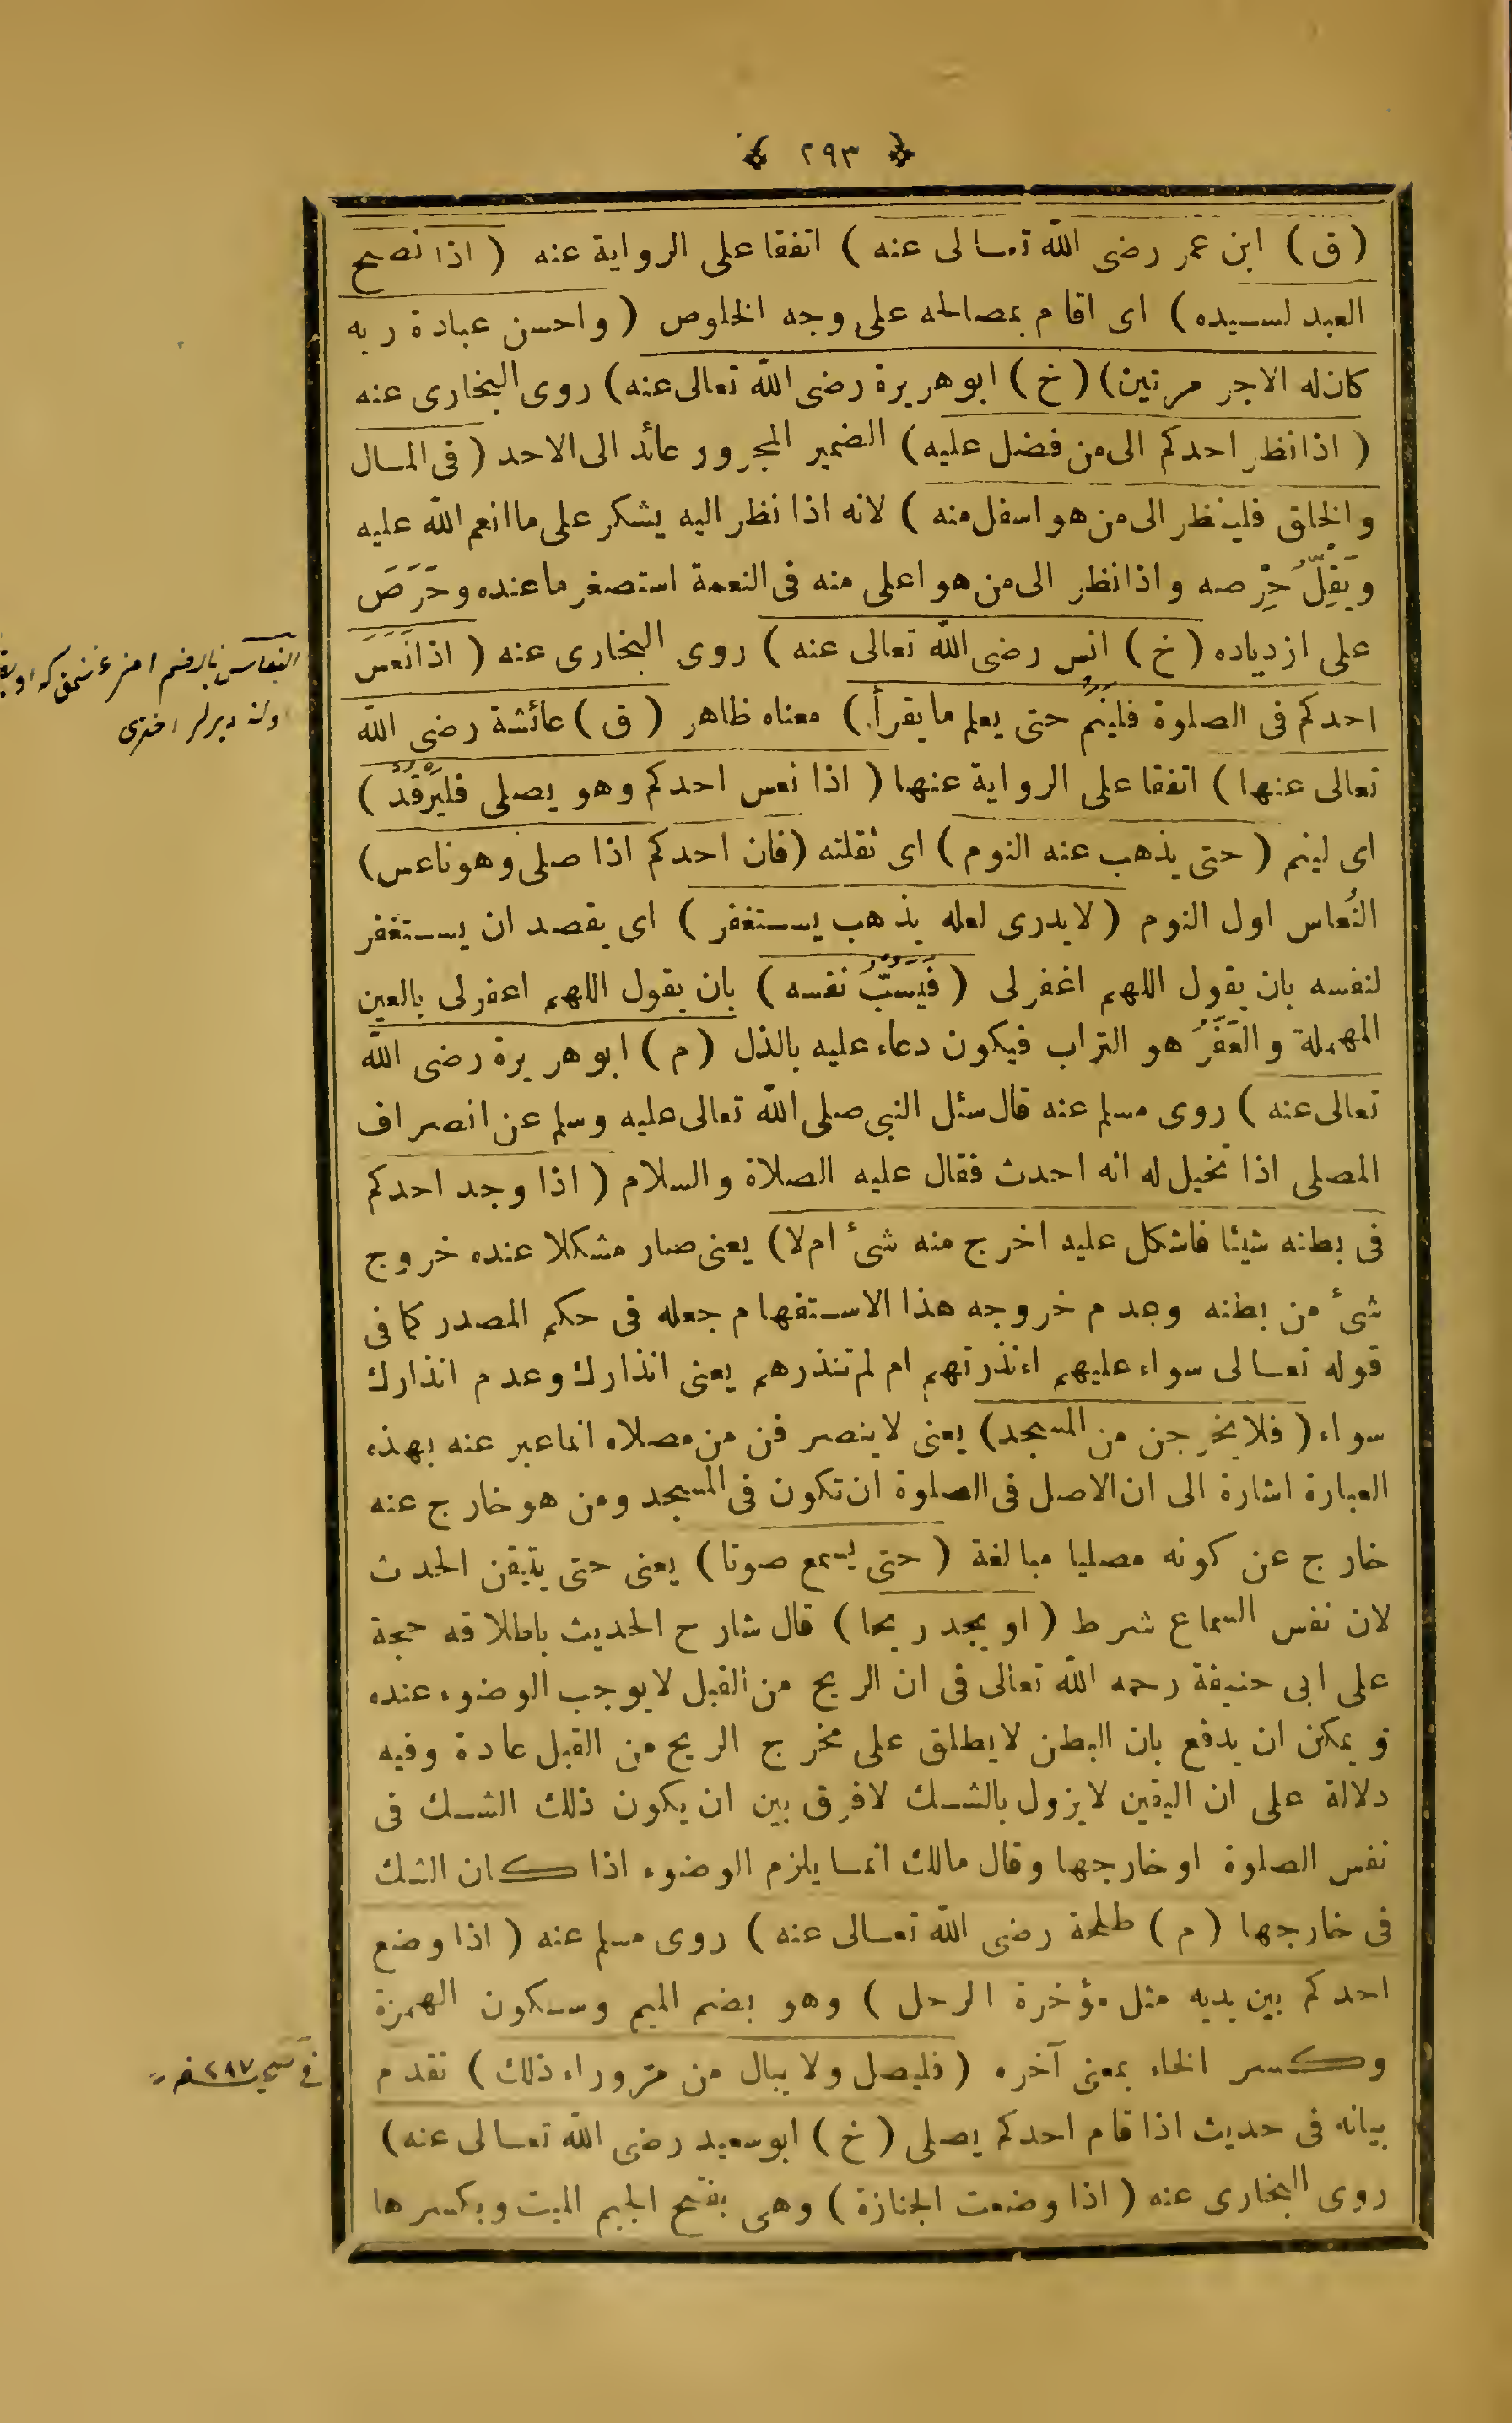 ﴿ ٢٩٣ ﴾
( ق ) ابن عمر رضى الله تعالى عنه ) اتفقا على الرواية عنه ( اذا نصح
العبد لسيده ) اى اقام بمصالحه على وجه الخلوص ( واحسن عبادة ربه
كان له الاجر مرتين ) ( خ ) ابو هريرة رضى الله تعالى عنه ) روى البخارى عنه
( اذا نظر احدكم الى من فضل عليه ) الضمير المجرور عائد الى الاحد ( فى المال
والخلق فلينظر الى من هو اسفل منه ) لانه اذا نظر اليه يشكر على ما انعم الله عليه
ويَقِلّ حِرْصه واذا نظر الى من هو اعلى منه فى النعمة استصغر ما عنده وحَرَصَ
على ازدياده ( خ ) انس رضى الله تعالى عنه ) روى البخارى عنه ( اذا نَعَسَ
احدكم فى الصلوة فلينَمْ حتى يعلم ما يقرأ ) معناه ظاهر ( ق ) عائشة رضى الله
تعالى عنها ) اتفقا على الرواية عنها ( اذا نعس احدكم وهو يصلى فليَرْقُدْ )
اى لينم ( حتى يذهب عنه النوم ) اى ثقلته ( فان احدكم اذا صلى وهو ناعس )
النُعاس اول النوم ( لا يدرى لعله يذهب يستغفر ) اى يقصد ان يستغفر
لنفسه بان يقول اللهم اغفر لى ( فَيَسُبُّ نفسه ) بان يقول اللهم اعفر لى بالعين
المهملة والعَفَرُ هو التراب فيكون دعاء عليه بالذل ( م ) ابو هريرة رضى الله
تعالى عنه ) روى مسلم عنه قال سئل النبى صلى الله تعالى عليه وسلم عن انصراف
المصلى اذا تخيل له انه احدث فقال عليه الصلاة والسلام ( اذا وجد احدكم
فى بطنه شيئا فاشكل عليه اخرج منه شئ ام لا ) يعنى صار مشكلا عنده خروج
شئ من بطنه وعدم خروجه هذا الاستفهام جعله فى حكم المصدر كما فى
قوله تعالى سواء عليهم ءانذرتهم ام لم تنذرهم يعنى انذارك وعدم انذارك
سواء ( فلا يخرجن من المسجد ) يعنى لا ينصرفن من مصلاه انما عبر عنه بهذه
العبارة اشارة الى ان الاصل فى الصلوة ان تكون فى المسجد ومن هو خارج عنه
خارج عن كونه مصليا مبالغة ( حتى يسمع صوتا ) يعنى حتى يتيقن الحدث
لان نفس السماع شرط ( او يجد ريحا ) قال شارح الحديث باطلاقه حجة
على ابى حنيفة رحمه الله تعالى فى ان الريح من القبل لا يوجب الوضوء عنده
ويمكن ان يدفع بان البطن لا يطلق على مخرج الريح من القبل عادة وفيه
دلالة على ان اليقين لا يزول بالشك لا فرق بين ان يكون ذلك الشك فى
نفس الصلوة او خارجها وقال مالك انما يلزم الوضوء اذا كان الشك
فى خارجها ( م ) طلحة رضى الله تعالى عنه ) روى مسلم عنه ( اذا وضع
احدكم بين يديه مثل مؤخرة الرحل ) وهو بضم الميم وسكون الهمزة
وكسر الخاء بمعنى آخره ( فليصل ولا يبال من مرّ وراء ذلك ) تقدم
بيانه فى حديث اذا قام احدكم يصلى ( خ ) ابو سعيد رضى الله تعالى عنه )
روى البخارى عنه ( اذا وضعت الجنازة ) وهى بفتح الجيم الميت وبكسرها
النعاس بالضم
ديرلر اخترى
فى ٢٨٧